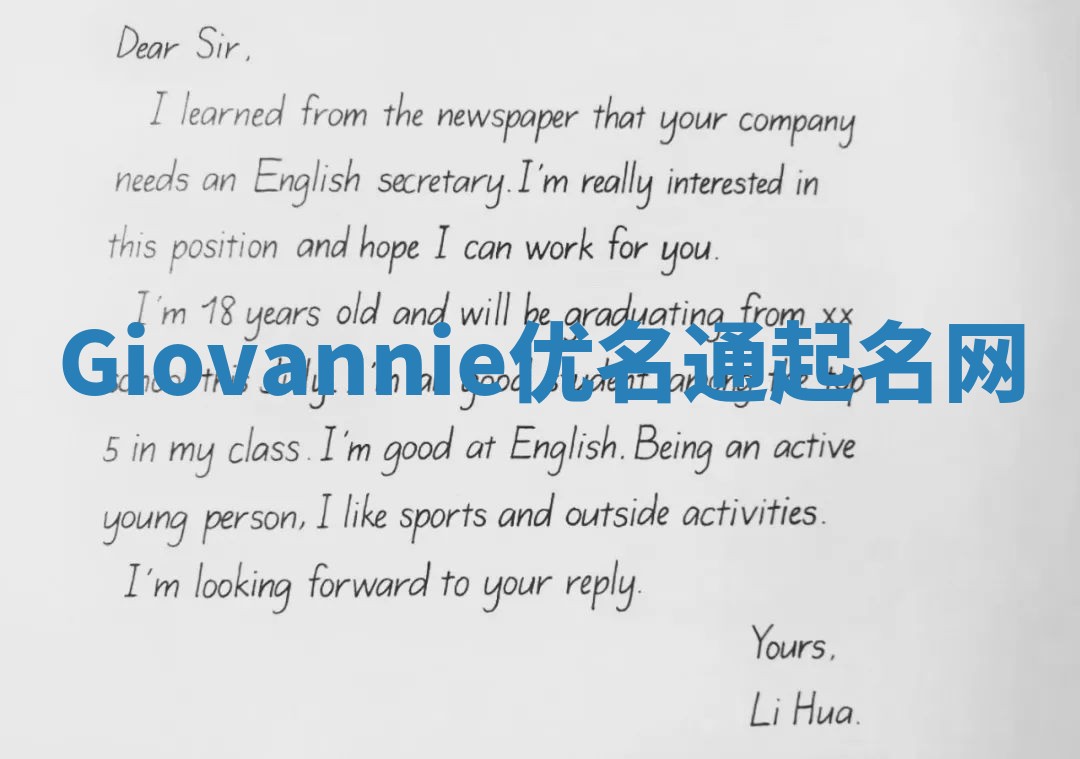 Dear Sir,
I learned from the newspaper that your company
needs an English secretary. I'm really interested in
this position and hope I can work for you.
I'm 18 years old and will be graduating from xx
Giovannie优名通起名网
school this July. I'm a good student among the top
5 in my class. I'm good at English. Being an active
young person, I like sports and outside activities.
I'm looking forward to your reply.
Yours,
Li Hua.